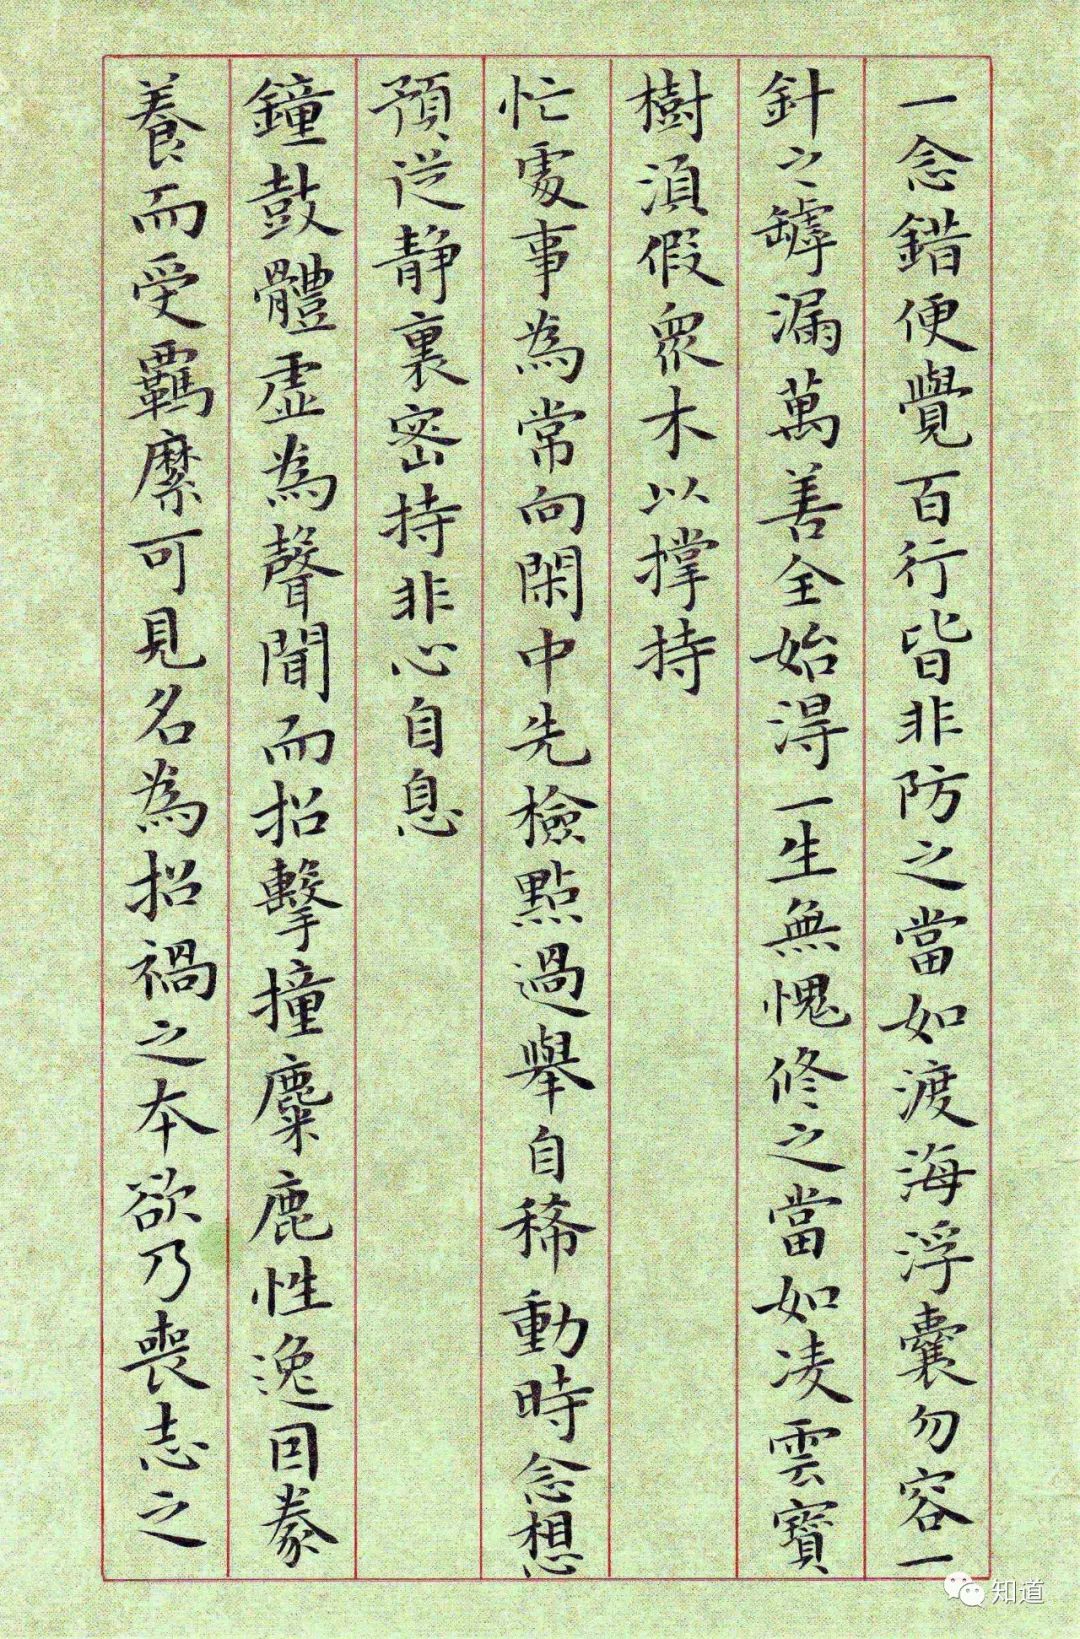 一念錯便覺百行皆非防之當如渡海浮囊勿容一
針之罅漏萬善全始得一生無愧修之當如凌雲寶
樹須假眾木以撐持
忙處事為常向閑中先檢點過舉自稀動時念想
預從靜裏密持非心自息
鐘鼓體虛為聲聞而招擊撞麋鹿性逸因豢
養而受羈縻可見名為招禍之本欲乃喪志之
知道